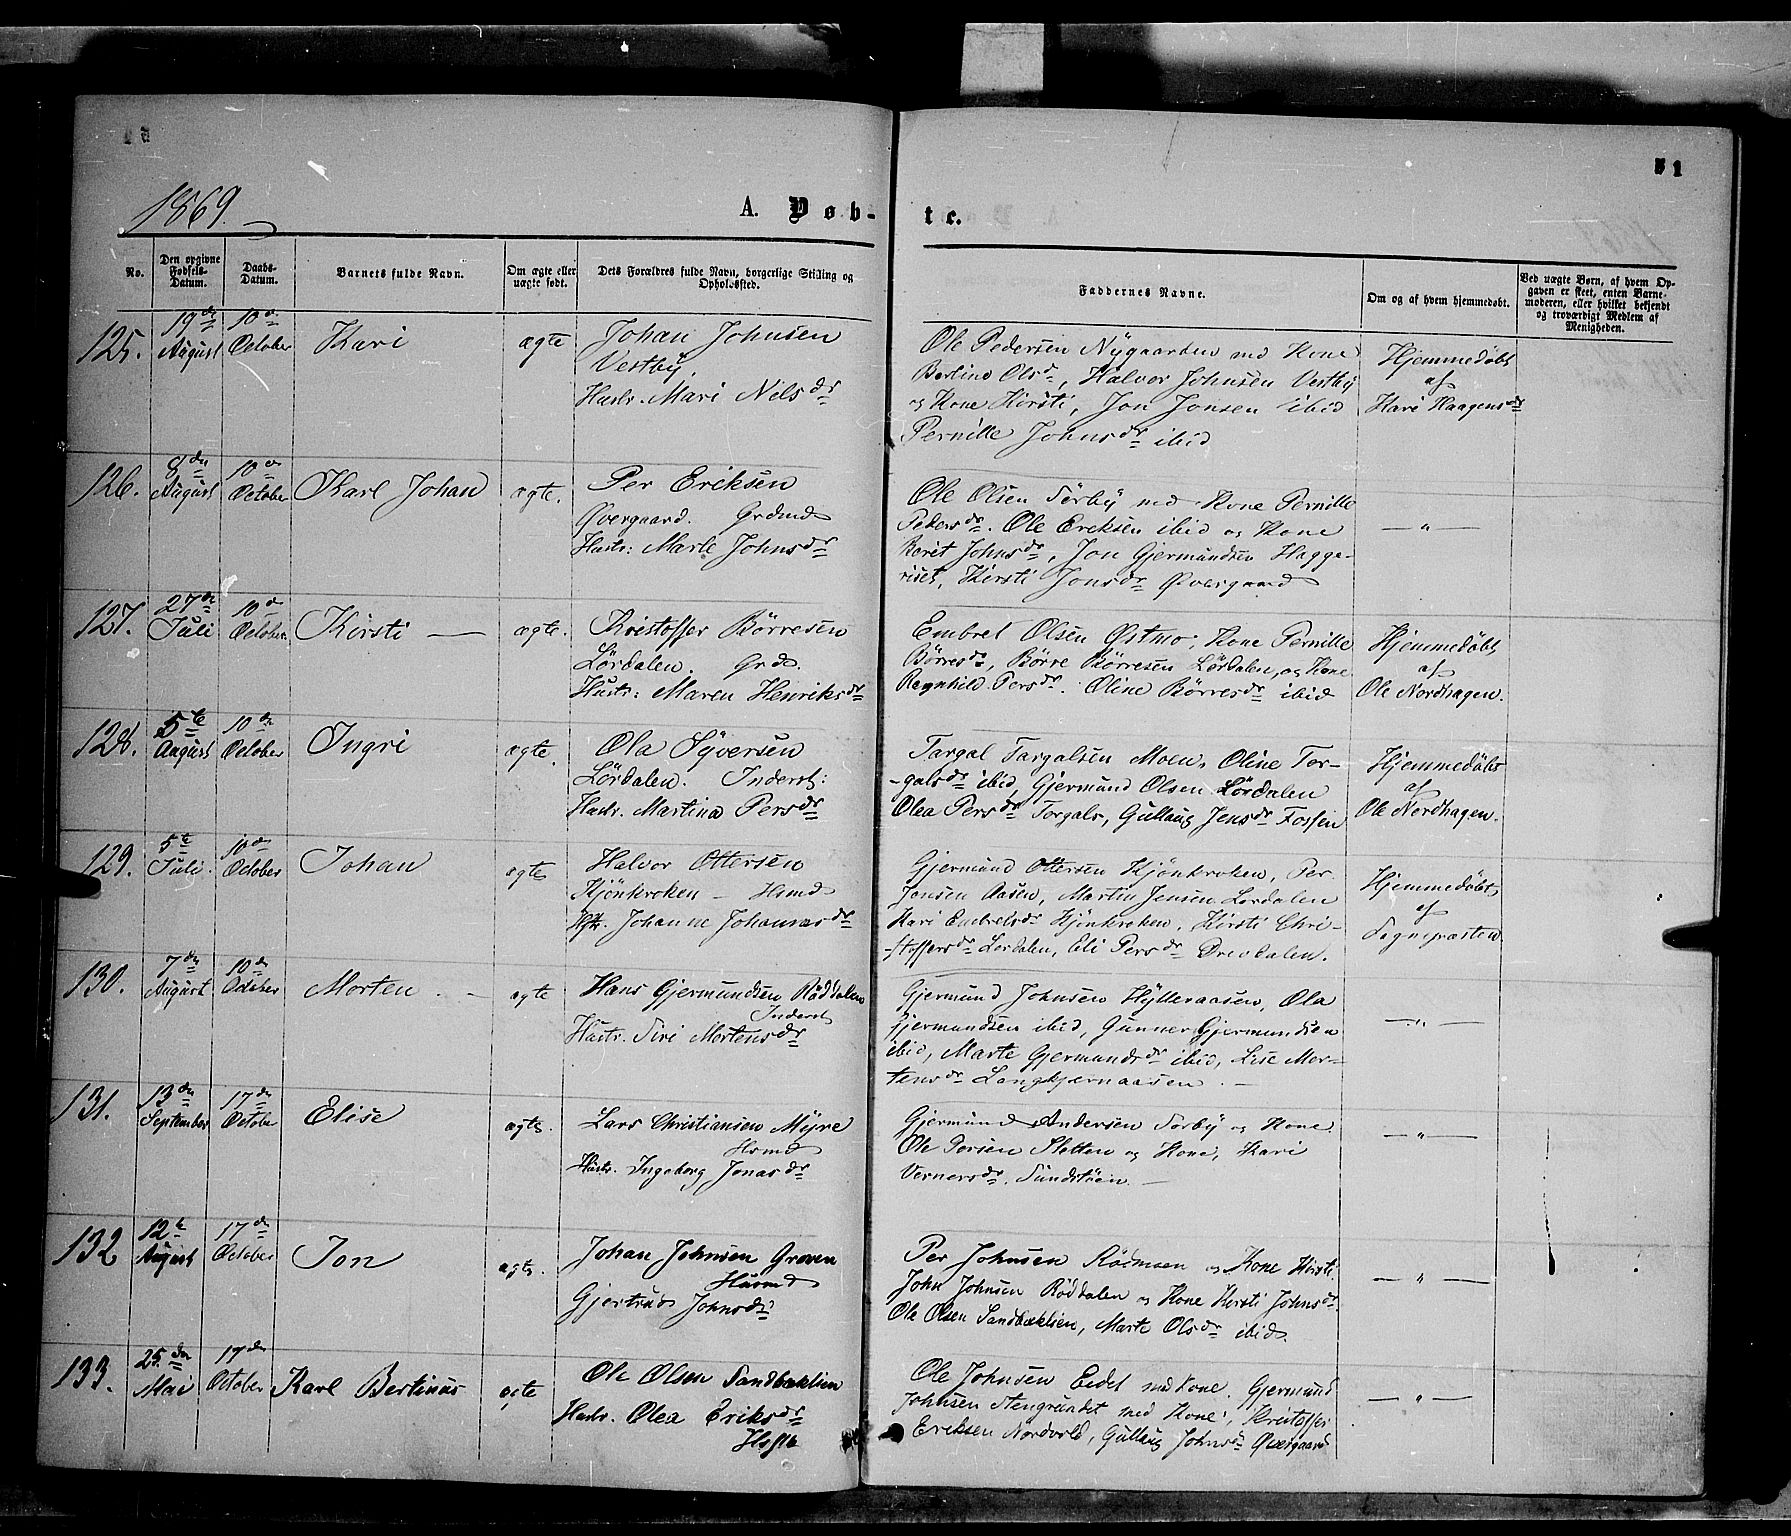 1869.
A. Døb-
te.
51
No.
Den opgivne Fødsels-Datum.
Daabs-Datum.
Barnets fulde Navn.
Om ægte eller uægte født.
Dets Forældres fulde Navn, borgerlige Stilling og Opholdssted.
Faddernes Navne.
Om og af hvem hjemmedøbt.
Ved uægte Børn, af hvem Opgaven er skeet, enten Barnemoderen, eller hvilket bekjendt og troværdigt Medlem af Menigheden.
125.
19de August
10de October
Kari
ægte
Johan Johnsen
Vestby.
Hustr. Mari Nilsdr
Ole Pedersen Nygaarden med Kone
Bertine Olsdr, Halvor Johnsen Vestby
og Kone Kirsti, Jon Jonsen ibid
Pernille Johnsdr ibid
Hjemmedøbt
af
Kari Haagensdr
126.
8de August
10de October
Karl Johan
ægte.
Per Eriksen
Øvergaard. Grdmd
Hustr: Marte Johnsdr
Ole Olsen Sørby med Kone Pernille
Pedersdr. Ole Ereksen ibid og Kone
Berit Johnsdr, Jon Gjermundsen Hagge-
riset, Kirsti Jonsdr Øvergaard
— " —
127.
27de Juli
10de October.
Kirsti —
ægte.
Kristoffer Börresen
Lördalen. Grd.
Hustr: Maren Henriksdr
Embret Olsen Østmo, Kone Pernille
Börresdr, Börre Börresen Lördalen, og Kone
Regnhild Persdr. Oline Börresdr ibid
Hjemmedøbt
af
Ole Nordhagen.
128.
5te August
10de October
Ingri
ægte.
Ola Syversen
Lördalen. Inderst:
Hustr. Martina Persdr
Targal Targalsen Moen, Oline Tor-
-galsdr ibid, Gjermund Olsen Lördalen
Olea Persdr Torgals, Gullaug Jensdr Fossen
Hjemmedøbt
af
Ole Nordhagen.
129.
5te Juli.
10de October
Johan
ægte
Halvor Ottersen
Kjönkroken — Hsmd
Hstr. Johanne Johannesdr
Gjermund Ottersen Kjönkroken, Per
Jonsen Aasen, Martin Jensen Lördalen
Kari Embretsdr Kjönkroken, Kirsti Chri-
stoffersdr Lördalen, Eli Persdr Drevdalen.
Hjemmedøbt
af
Sognepræsten
130.
7de August
10de October
Morten. —
ægte
Hans Gjermundsen Röddalen
Inderst
Hustr. Siri Mortensdr
Gjermund Johnsen Hylleraasen, Ola
Gjermundsen ibid, Gunner Gjermundsen
ibid, Marte Gjermundsdr ibid, Lise Mor-
tensdr Langkjernaasen. —
— " —
131.
13de September
17de October
Elise
ægte.
Lars Christiansen Myre
Hsmd
Hustr. Ingeborg Jonasdr
Gjermund Andersen Sørby og Kone.
Ole Persen Sletten og Kone, Kari
Vernersdr. Sundstöen. —
— " —
132
12te August
17de October
Jon
ægte.
Johan Johnsen Groven
Husmd
Gjertrud Johnsdr
Per Johnsen Rösmsen og Kone Kirsti
John Johnsen Röddalen og Kone Kirsti Johnsdr
Ole Olsen Sandbæklien, Marte Olsdr ibid.
— " —
133.
25de Mai
17de October
Karl Bertinus
ægte
Ole Olsen Sandbæklien
Hustr. Olea Eriksdr
Ole Johnsen Eidet med Kone. Gjermund
Johnsen Stengrundet med Kone, Kristoffer
Eriksen Nordvold, Gullaug Johnsdr Øvergaard
— " —